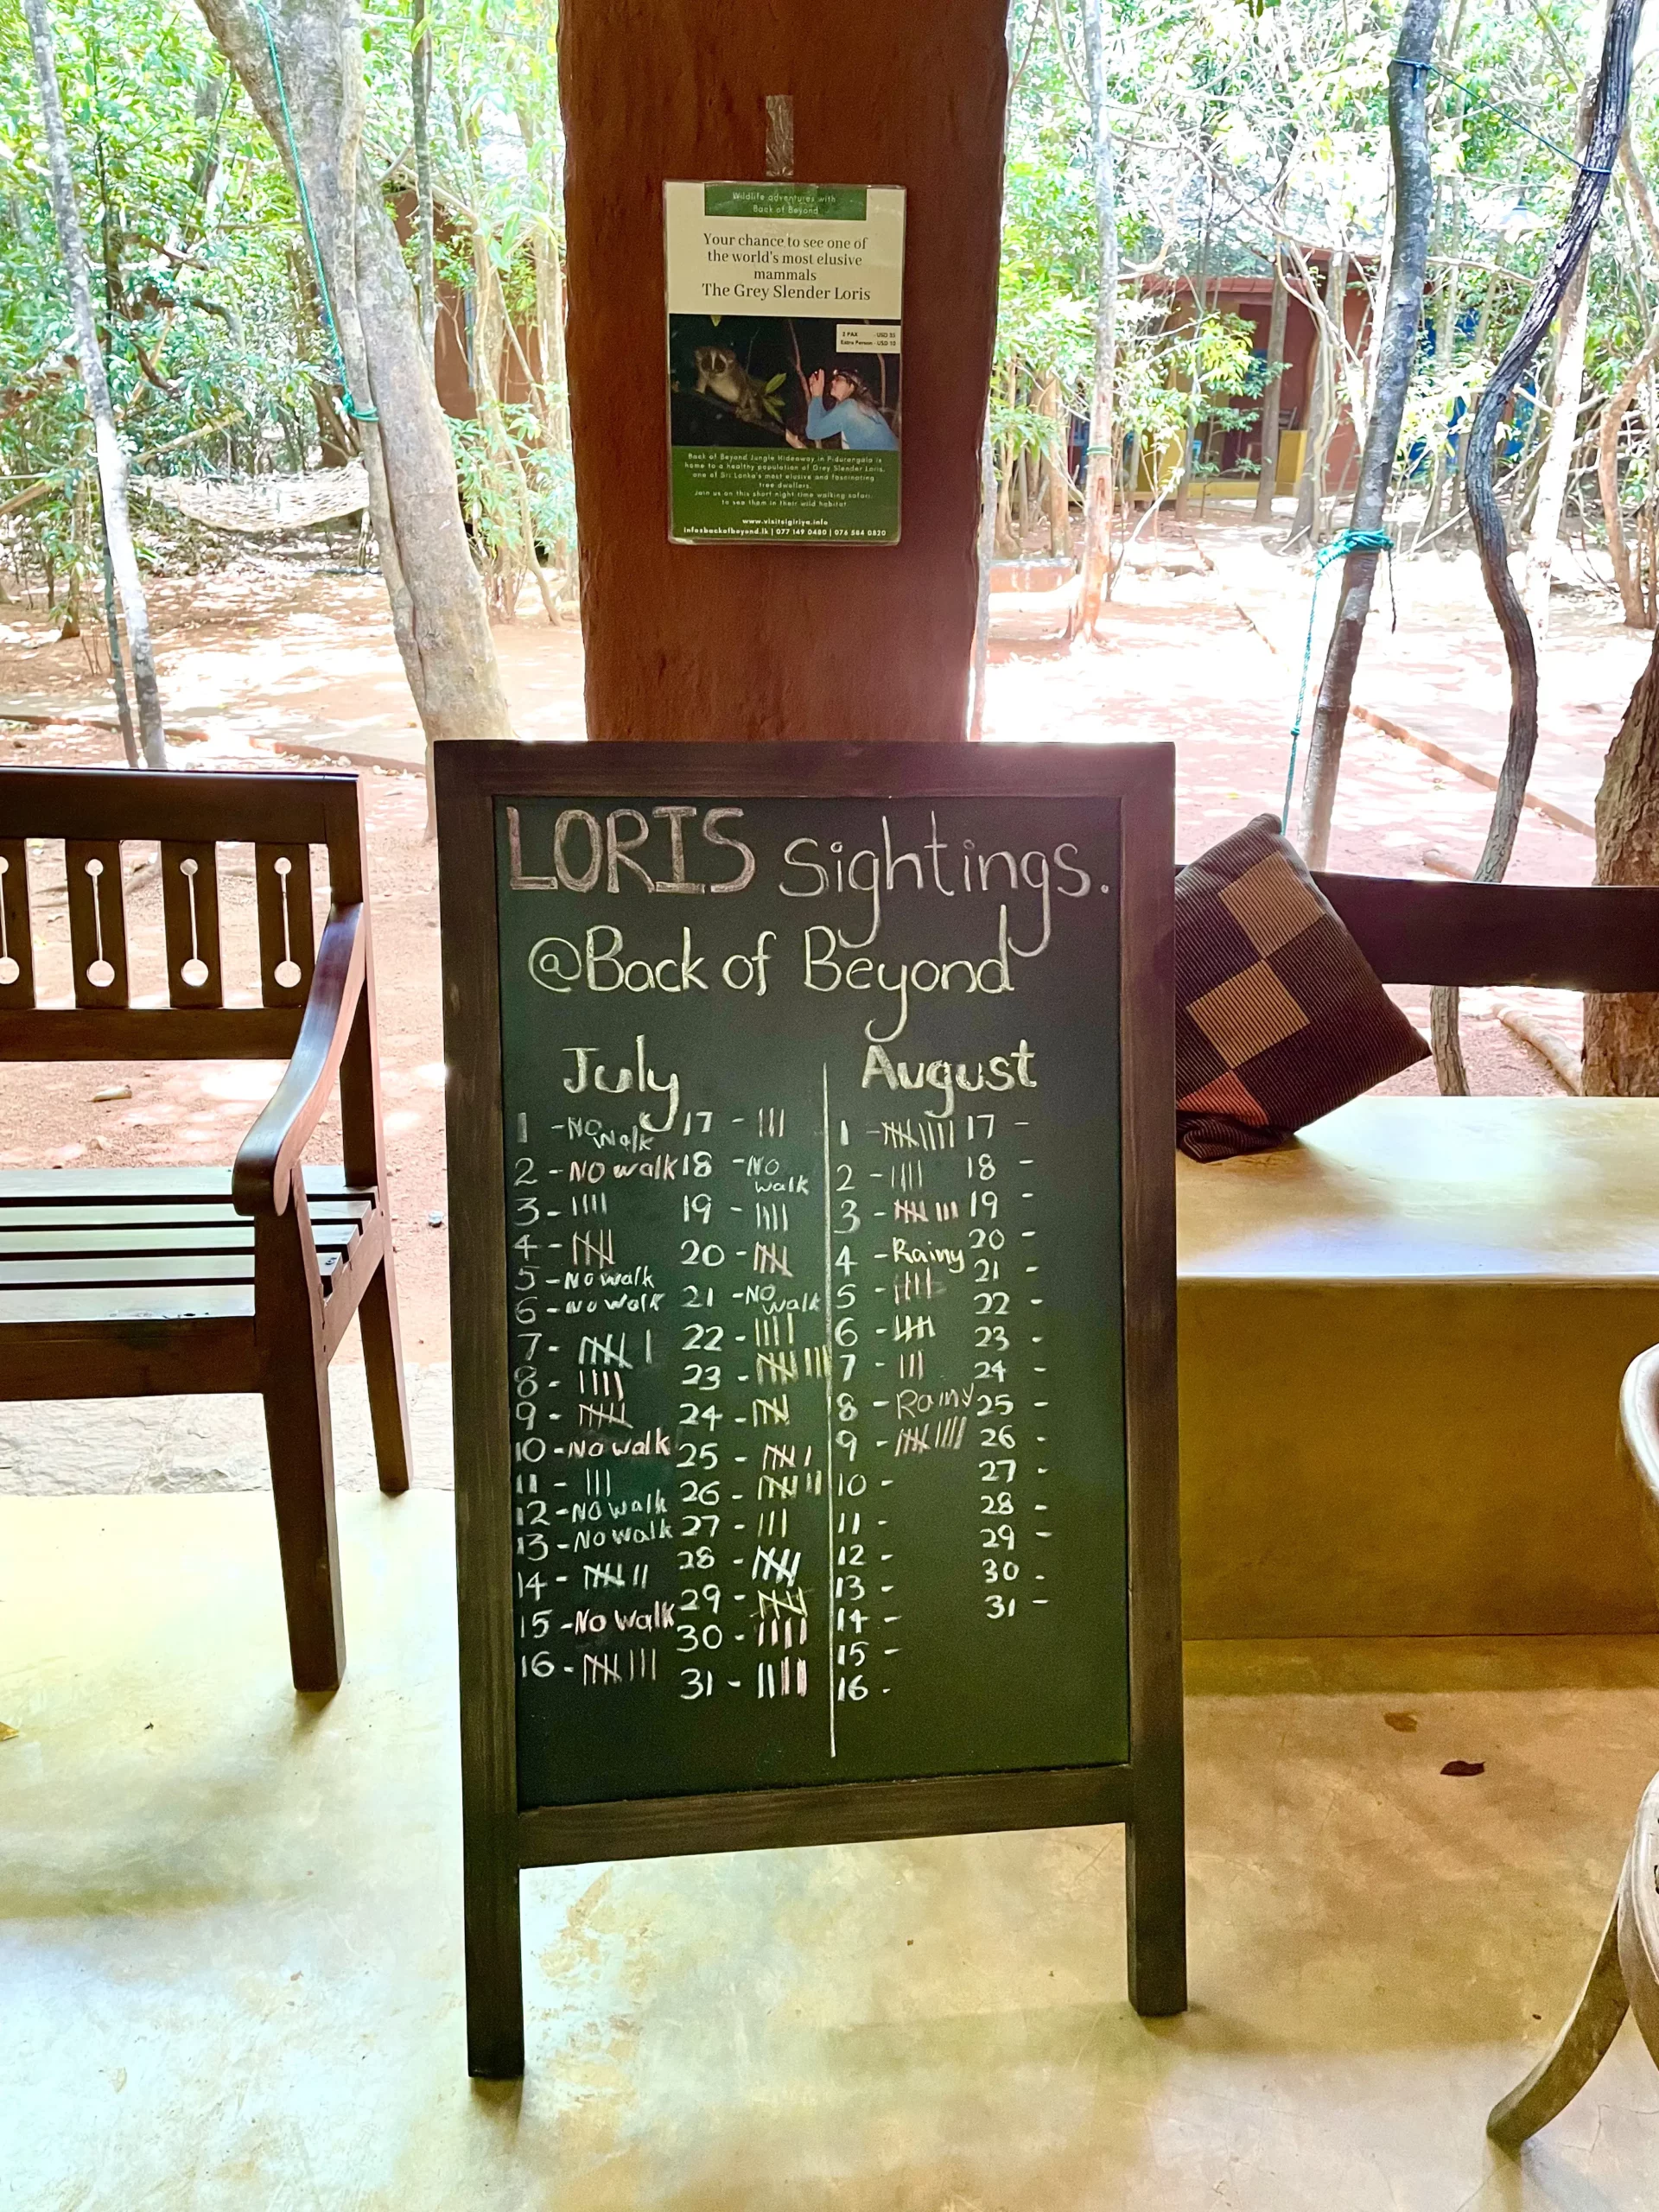 Wildlife adventures with
Back of Beyond
Your chance to see one of
the world's most elusive
mammals
The Grey Slender Loris
2 PAX - USD 35
Extra Person - USD 10
Back of Beyond Jungle Hideaway in Pidurangala is
home to a healthy population of Grey Slender Loris,
one of Sri Lanka's most elusive and fascinating
tree dwellers.
Join us on this short night time walking safari
to see them in their wild habitat
www.visitsigiriya.info
info@backofbeyond.lk | 077 149 0480 | 076 564 0820
LORIS Sightings.
@Back of Beyond
July
1 - No walk
2 - No walk
3 - ||||
4 - 卌
5 - No walk
6 - No walk
7 - 卌 |
8 - ||||
9 - 卌
10 - No walk
11 - |||
12 - No walk
13 - No walk
14 - 卌 ||
15 - No walk
16 - 卌 |||
17 - |||
18 - No walk
19 - ||||
20 - 卌
21 - No walk
22 - ||||
23 - 卌 |||
24 - 卌
25 - 卌 |
26 - 卌 ||
27 - |||
28 - 卌
29 - 卌
30 - ||||
31 - |||||
August
1 - 卌 ||||
2 - ||||
3 - 卌 |||
4 - Rainy
5 - ||||
6 - 卌
7 - |||
8 - Rainy
9 - 卌 ||||
10 -
11 -
12 -
13 -
14 -
15 -
16 -
17 -
18 -
19 -
20 -
21 -
22 -
23 -
24 -
25 -
26 -
27 -
28 -
29 -
30 -
31 -